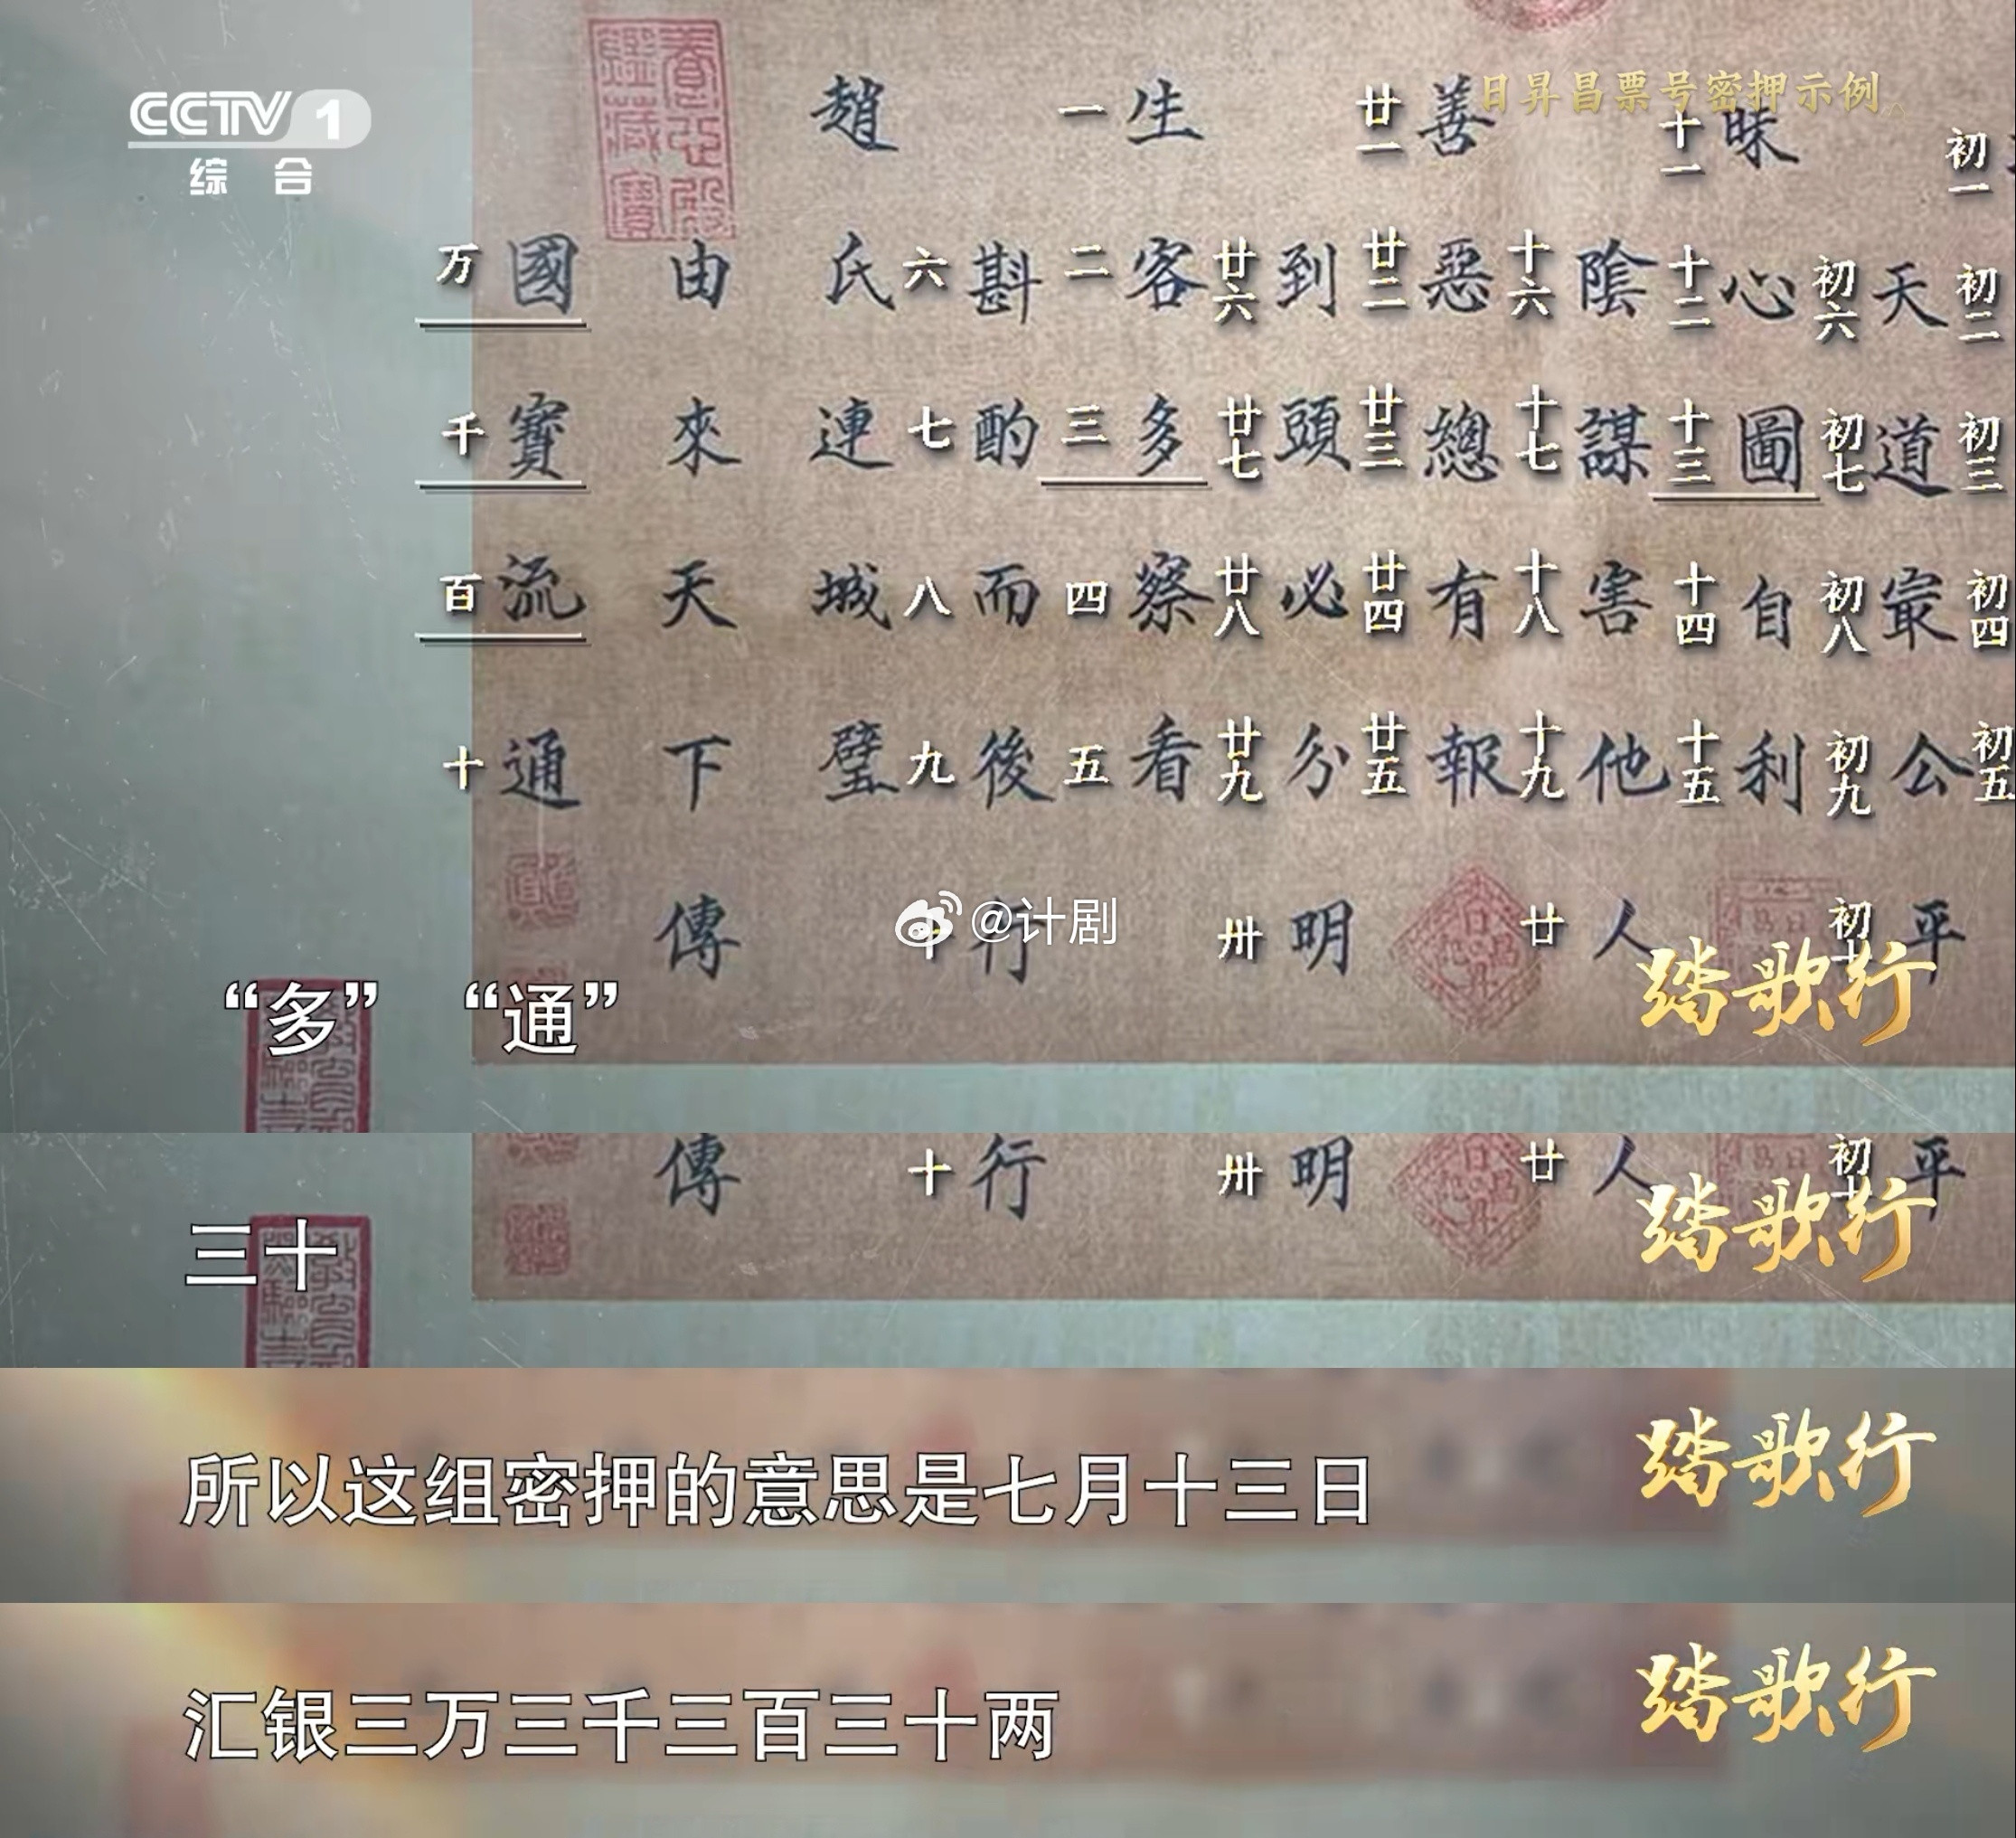 CCTV 1
综合
日昇昌票号密押示例
趙 一 生 廿一 善 十一 昧 初一
万 國 由 氏 六 斟 二 客 廿六 到 廿二 惡 十六 陰 十二 心 初六 天 初二
千 寳 來 連 七 酌 三 多 廿七 頭 廿三 總 十七 謀 十三 圖 初七 道 初三
百 流 天 城 八 而 四 察 廿八 必 廿四 有 十八 害 十四 自 初八 最 初四
十 通 下 璧 九 後 五 看 廿九 分 廿五 報 十九 他 十五 利 初九 公 初五
傳 十 行 卅 明 廿 人 初十 平
@计剧
“多” “通”
踏歌行
傳 十 行 卅 明 廿 人 初十 平
三十
踏歌行
所以这组密押的意思是七月十三日
踏歌行
汇银三万三千三百三十两
踏歌行